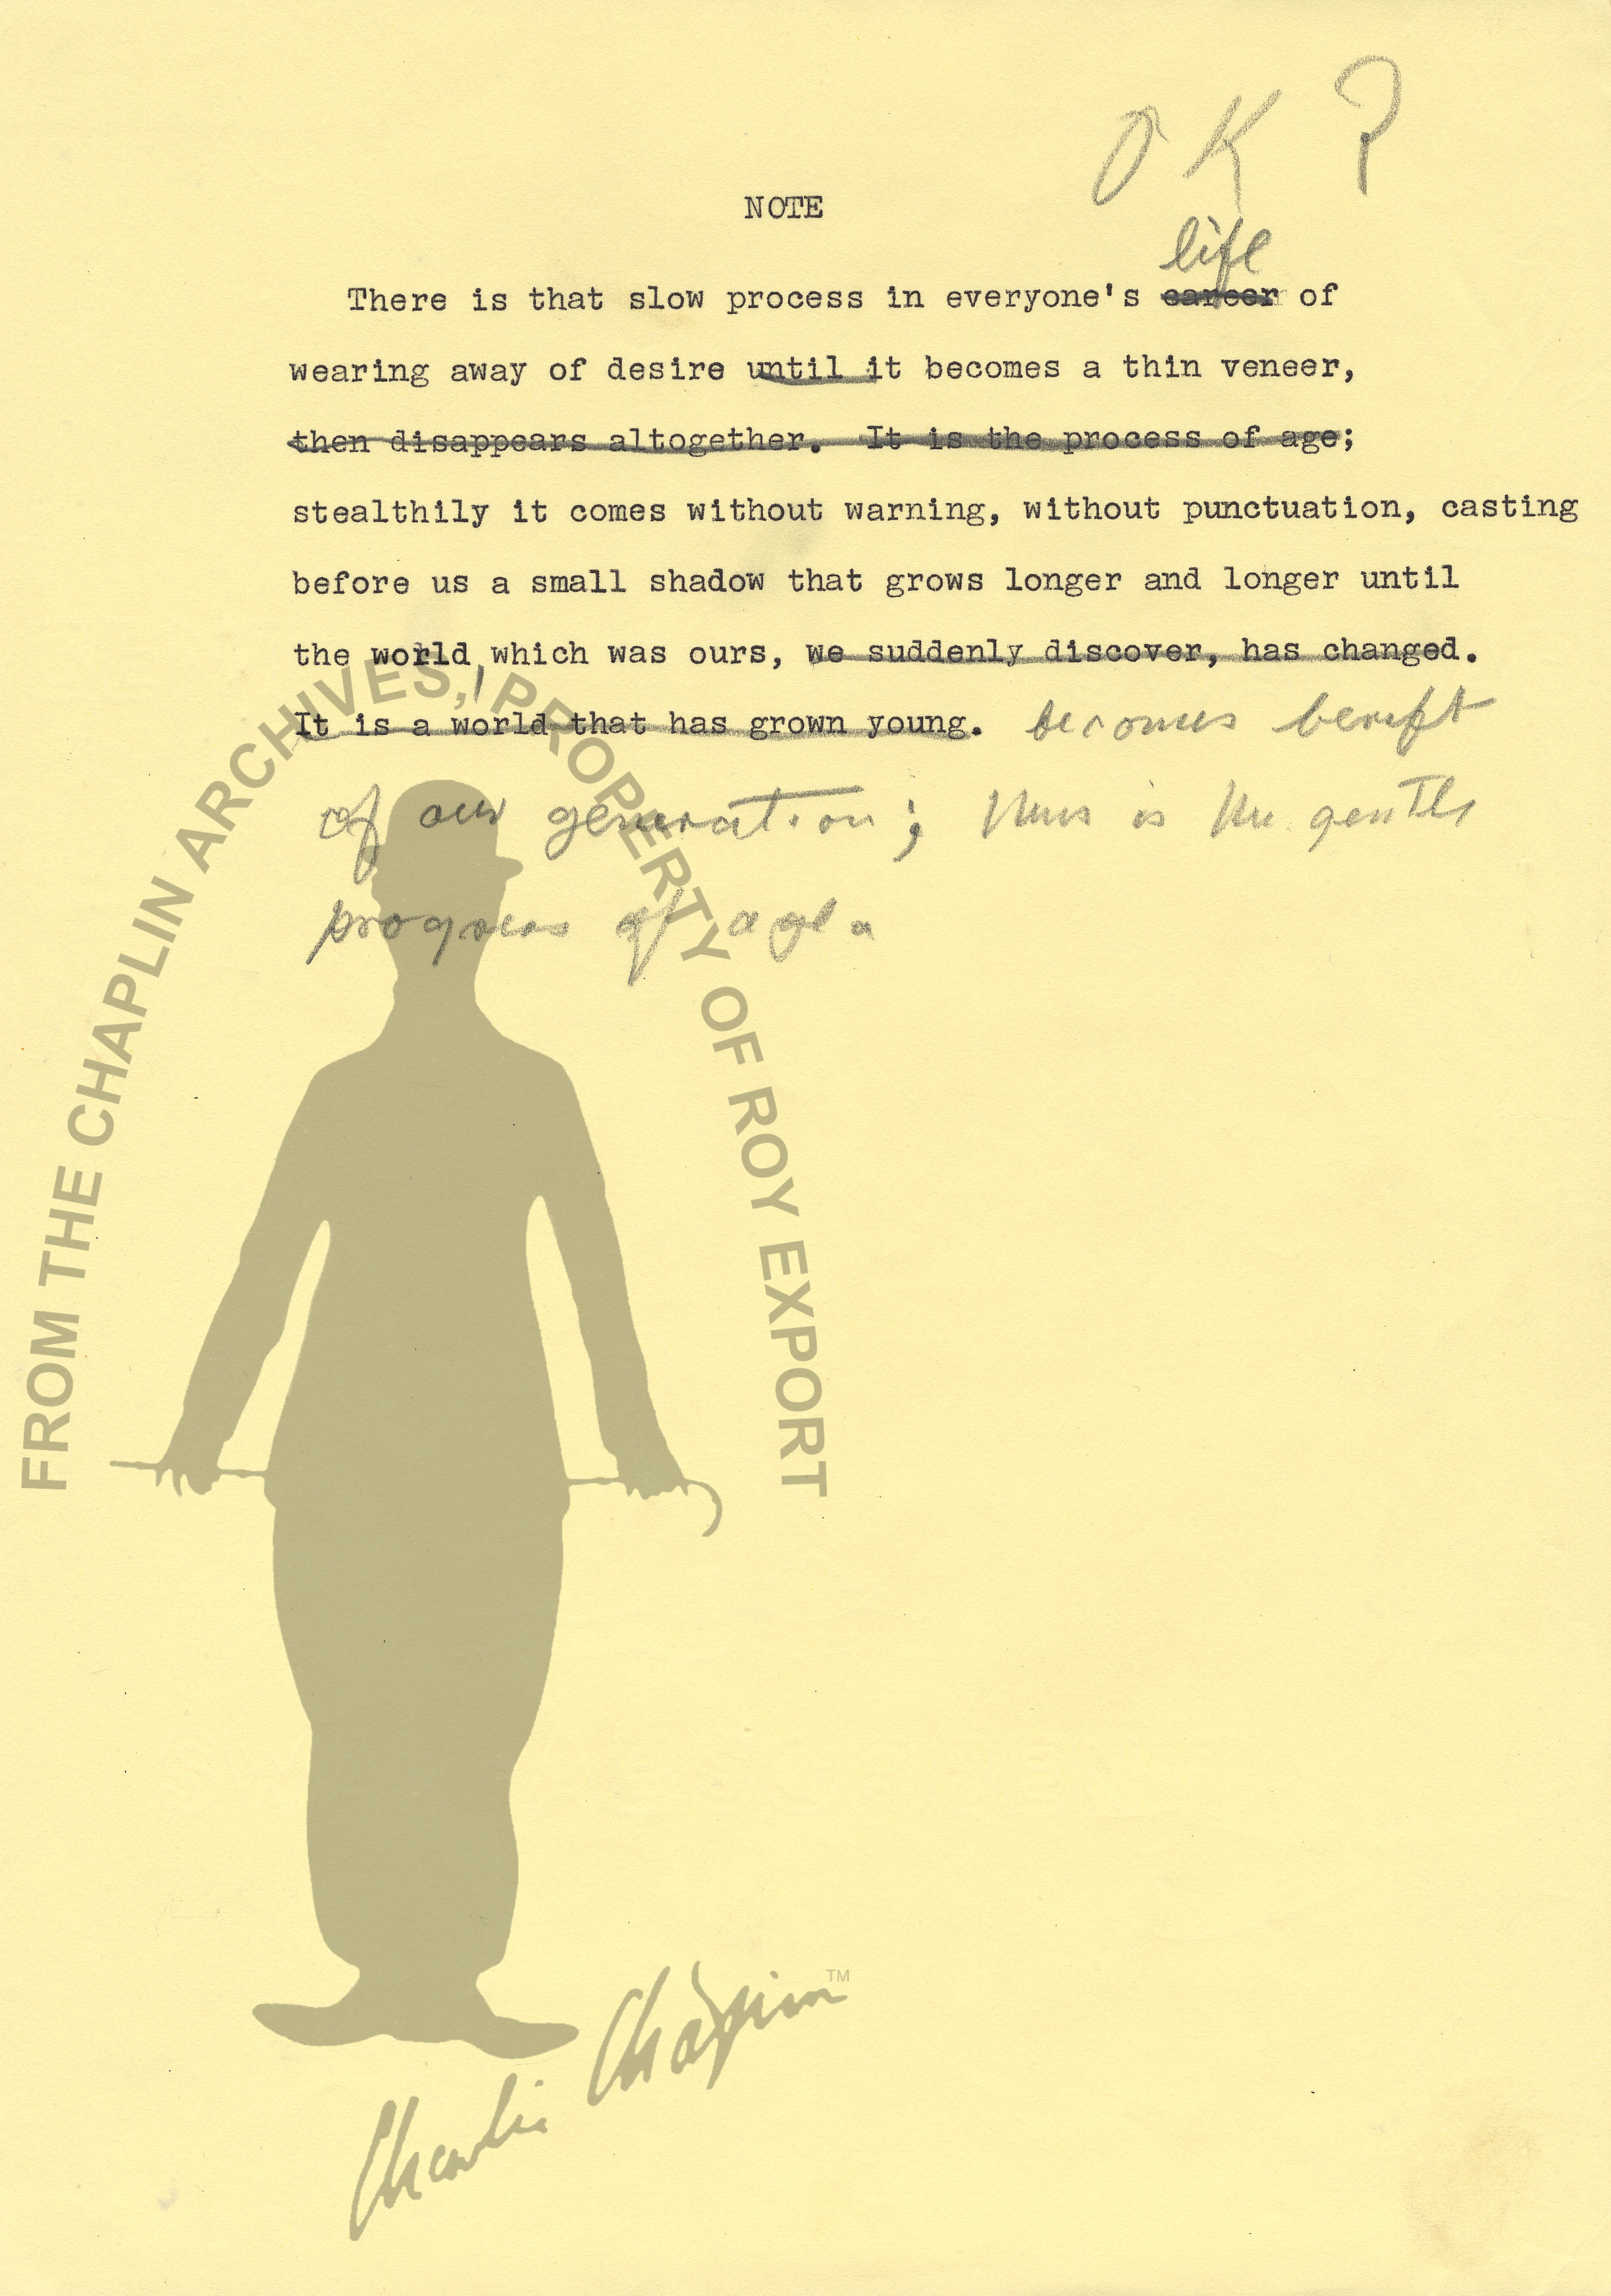 OK?
NOTE
life
There is that slow process in everyone's career of
wearing away of desire until it becomes a thin veneer,
then disappears altogether. It is the process of age;
stealthily it comes without warning, without punctuation, casting
before us a small shadow that grows longer and longer until
the world, which was ours, we suddenly discover, has changed.
It is a world that has grown young. becomes bereft
of our generation; thus is the gentle
progress of age.
FROM THE CHAPLIN ARCHIVES, PROPERTY OF ROY EXPORT
Charlie Chaplin TM